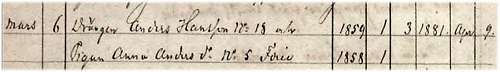 mars 6 Drängen Anders Hansson No 18 och 1859 1 3 1881. Apr. 9.
Pigan Anna Anders dr. No 5 1858 1